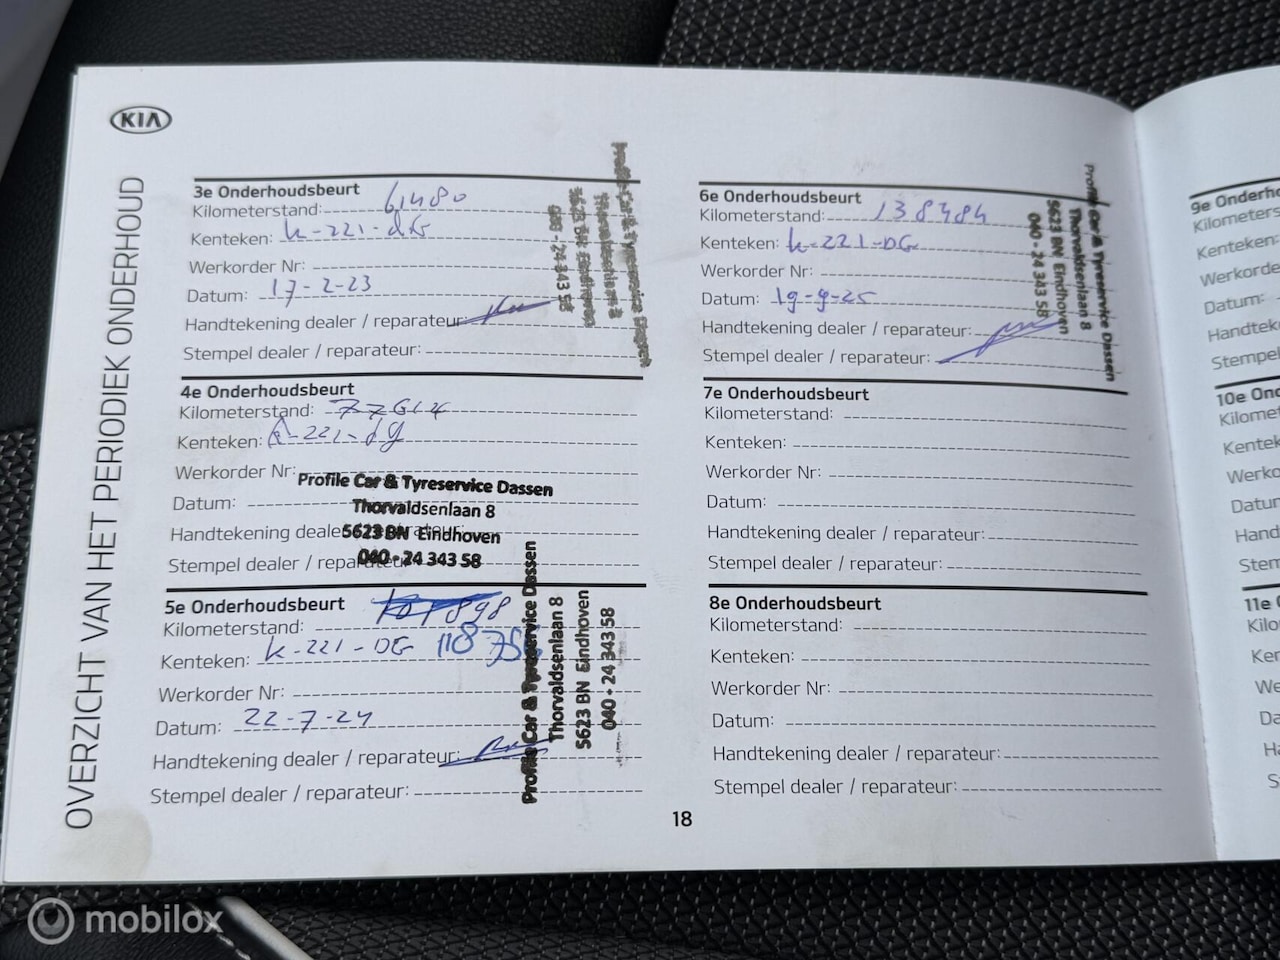 KIA
OVERZICHT VAN HET PERIODIEK ONDERHOUD
3e Onderhoudsbeurt
Kilometerstand: 61480
Kenteken: k-221-dG
Werkorder Nr:
Datum: 17-2-23
Handtekening dealer / reparateur:
Stempel dealer / reparateur:
Profile Car & Tyreservice
Thorvaldsenlaan 8
5623 BN Eindhoven
040 - 24 343 58
4e Onderhoudsbeurt
Kilometerstand:
Kenteken: k-221-dg
Werkorder Nr:
Datum:
Handtekening dealer
Stempel dealer / reparateur:
Profile Car & Tyreservice Dassen
Thorvaldsenlaan 8
5623 BN Eindhoven
040 - 24 343 58
5e Onderhoudsbeurt
Kilometerstand:
Kenteken: k-221-DG
Werkorder Nr:
Datum: 22-7-24
Handtekening dealer / reparateur:
Stempel dealer / reparateur:
Profile Car & Tyreservice Dassen
Thorvaldsenlaan 8
5623 BN Eindhoven
040 - 24 343 58
6e Onderhoudsbeurt
Kilometerstand: 138484
Kenteken: k-221-DG
Werkorder Nr:
Datum: 19-9-25
Handtekening dealer / reparateur:
Stempel dealer / reparateur:
Profile Car & Tyreservice Dassen
Thorvaldsenlaan 8
5623 BN Eindhoven
040 - 24 343 58
7e Onderhoudsbeurt
Kilometerstand:
Kenteken:
Werkorder Nr:
Datum:
Handtekening dealer / reparateur:
Stempel dealer / reparateur:
8e Onderhoudsbeurt
Kilometerstand:
Kenteken:
Werkorder Nr:
Datum:
Handtekening dealer / reparateur:
Stempel dealer / reparateur:
18
9e Onderho
Kilometers
Kenteken:
Werkorde
Datum:
Handteke
Stempel
10e Ond
Kilomet
Kentek
Werko
Datur
Hand
Stem
11e
Kilo
Ker
We
Da
Ha
S
mobilox